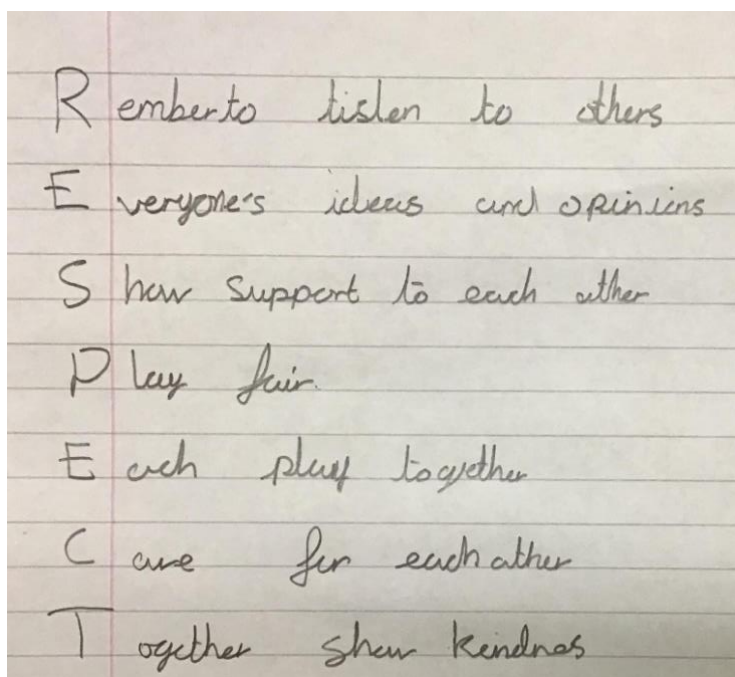 Rember to listen to others
Everyone's ideas and opinions
Show support to each other
Play fair.
Each play together
Care for each other
Together show kindnes